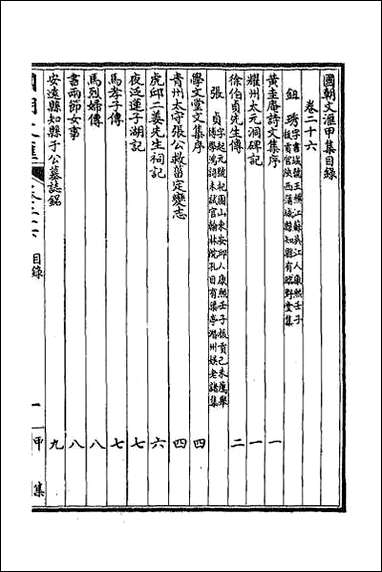 國朝文滙甲集目錄
卷二十六
鈕琇 字書城號玉樵江蘇吳江人康熙壬子拔貢官陝西蒲城縣知縣有臨野堂集
黃圭庵詩文集序 一
耀州太元洞碑記 一
徐伯貞先生傳 二
張貞 字起元號杞園山東安邱人康熙壬子拔貢己未薦舉博學鴻詞未試官翰林院孔目有渠亭潛州娛老諸集
學文堂文集序 四
青州太守張公救菑定變志 四
虎邱二姜先生祠記 六
夜泛蓮子湖記 七
馬孝子傳 七
馬烈婦傳 八
書兩節女事 八
安遠縣知縣于公墓誌銘 九
目錄
一
甲集